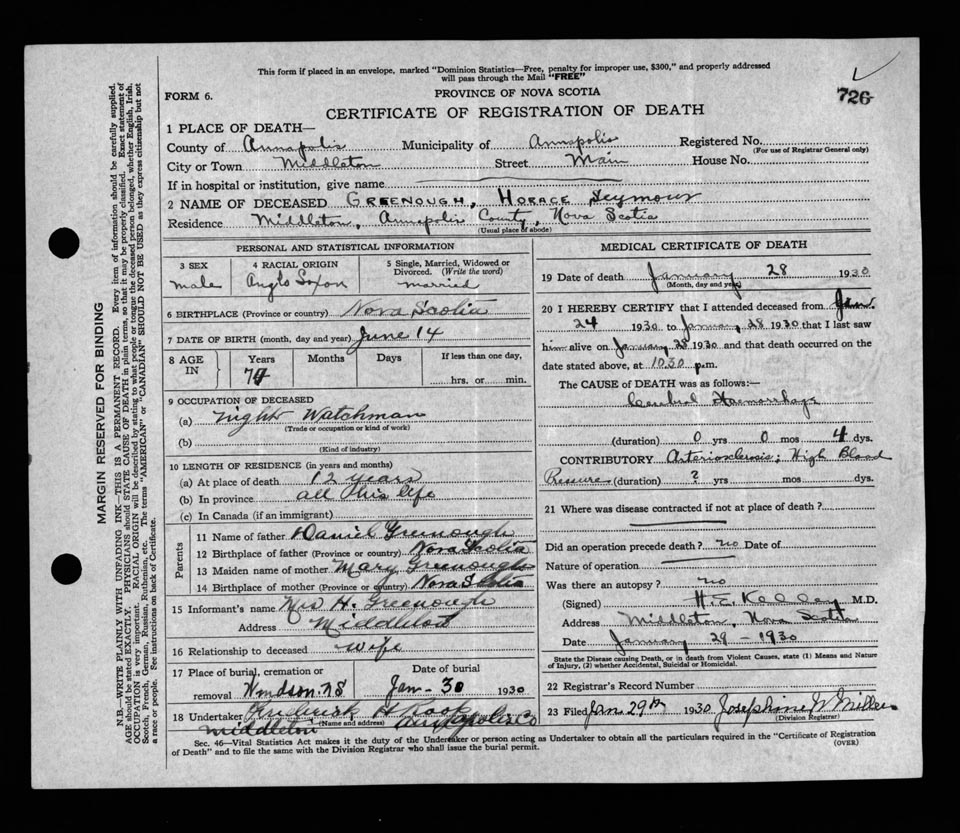 This form if placed in an envelope, marked "Dominion Statistics—Free, penalty for improper use, $300," and properly addressed
will pass through the Mail "FREE"
726
FORM 6.
PROVINCE OF NOVA SCOTIA
CERTIFICATE OF REGISTRATION OF DEATH
1 PLACE OF DEATH—
County of Annapolis Municipality of Annapolis Registered No.
(For use of Registrar General only)
City or Town Middleton Street Main House No.
If in hospital or institution, give name
2 NAME OF DECEASED GREENOUGH, HORACE Seymour
Residence Middleton, Annapolis County, Nova Scotia
(Usual place of abode)
PERSONAL AND STATISTICAL INFORMATION
3 SEX 4 RACIAL ORIGIN 5 Single, Married, Widowed or
Divorced. (Write the word)
male Anglo Saxon married
6 BIRTHPLACE (Province or country) Nova Scotia
7 DATE OF BIRTH (month, day and year) June 14
8 AGE IN Years Months Days If less than one day,
hrs. or min.
9 OCCUPATION OF DECEASED
(a) night Watchman
(Trade or occupation or kind of work)
(b)
(Kind of industry)
10 LENGTH OF RESIDENCE (in years and months)
(a) At place of death 12 years
(b) In province all his life
(c) In Canada (if an immigrant)
Parents
11 Name of father Daniel Greenough
12 Birthplace of father (Province or country) Nova Scotia
13 Maiden name of mother Mary Greenough
14 Birthplace of mother (Province or country) Nova Scotia
15 Informant's name Mrs H. Greenough
Address Middleton
16 Relationship to deceased wife
17 Place of burial, cremation or Date of burial
removal Windsor. NS Jan - 30 1930
18 Undertaker Frederick H Roop
(Name and address)
Middleton Annapolis Co
MEDICAL CERTIFICATE OF DEATH
19 Date of death January 28 1930
(Month, day and year)
20 I HEREBY CERTIFY that I attended deceased from Jan.
24 1930 to January 28 1930 that I last saw
him alive on January 28 1930 and that death occurred on the
date stated above, at 10.30 p.m.
The CAUSE of DEATH was as follows:—
Cerebral Haemorrhage
(duration) 0 yrs 0 mos 4 dys.
CONTRIBUTORY Arteriosclerosis; High Blood
Pressure (duration) ? yrs mos dys.
21 Where was disease contracted if not at place of death?
Did an operation precede death? no Date of
Nature of operation
Was there an autopsy? no
(Signed) H. E. Kelley M.D.
Address Middleton, Nova Scotia
Date January 29 - 1930
State the Disease causing Death, or in death from Violent Causes, state (1) Means and Nature
of Injury, (2) whether Accidental, Suicidal or Homicidal.
22 Registrar's Record Number
23 Filed Jan. 29th 1930 Josephine W Miller
(Division Registrar)
Sec. 46—Vital Statistics Act makes it the duty of the Undertaker or person acting as Undertaker to obtain all the particulars required in the "Certificate of Registration
of Death" and to file the same with the Division Registrar who shall issue the burial permit.
(OVER)
MARGIN RESERVED FOR BINDING
N.B.—WRITE PLAINLY WITH UNFADING INK—THIS IS A PERMANENT RECORD. Every item of information should be carefully supplied.
AGE should be stated EXACTLY. PHYSICIANS should STATE CAUSE OF DEATH in plain terms, so that it may be properly classified. Exact statement of
OCCUPATION is very important. RACIAL ORIGIN will be described by stating to what people or tongue the deceased person belonged, whether English, Irish,
Scotch, French, German, Russian, Ruthenian, etc. The terms "AMERICAN" or "CANADIAN" SHOULD NOT BE USED as they express citizenship but not
a race or people. See instructions on back of Certificate.